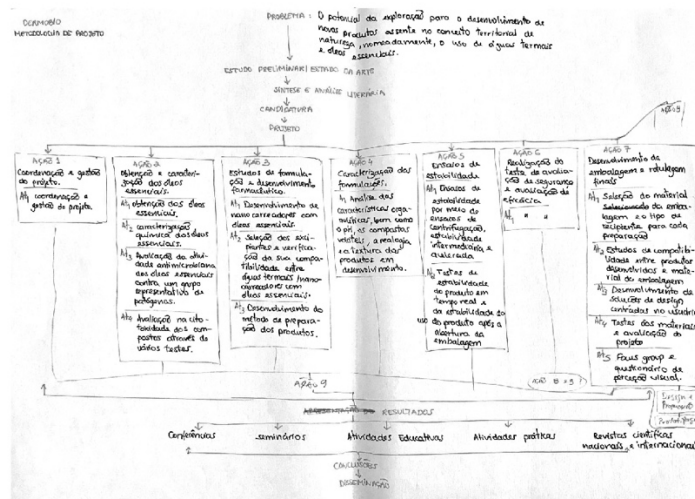 DERMOBIO
METODOLOGIA DE PROJETO
PROBLEMA: O potencial da exploração para o desenvolvimento de
novos produtos assente no conceito territorial de
natureza, nomeadamente, o uso de águas termais
e óleos essenciais.
ESTUDO PRELIMINAR/ESTADO DA ARTE
SÍNTESE E ANÁLISE LITERÁRIA
CANDIDATURA
PROJETO
AÇÃO 1
Coordenação e gestão
do projeto.
At1 coordenação e
gestão do projeto.
AÇÃO 2
Obtenção e caracteri-
zação dos óleos
essenciais.
At1 obtenção dos óleos
essenciais.
At2 caracterização
química dos óleos
essenciais.
At3 Avaliação da ativi-
dade antimicrobiana
dos óleos essenciais
contra um grupo
representativo de
patógenos.
At4 Avaliação na cito-
toxicidade dos com-
postos através de
vários testes.
AÇÃO 3
Estudos de formula-
ção e desenvolvimento
farmacêutico.
At1 Desenvolvimento de
nano carreadores com
óleos essenciais.
At2 Seleção dos exci-
pientes e verifica-
ção da sua compa-
tibilidade entre
águas termais/nano-
carreadores com
óleos essenciais.
At3 Desenvolvimento do
método de prepara-
ção dos produtos.
AÇÃO 4
Caracterização das
formulações.
At1 Análise das
características organo-
léticas, bem como
o pH, os compostos
voláteis, a reologia
e a textura dos
produtos em
desenvolvimento.
AÇÃO 5
Ensaios de
estabilidade
At1 Ensaios de
estabilidade
por meio de
ensaios de
centrifugação,
estabilidade
intermediária e
acelerada.
At2 Testes de
estabilidade
do produto em
tempo real e
da estabilidade do
uso do produto após a
abertura da
embalagem
AÇÃO 6
Realização do
teste de avalia-
ção de segurança
e avaliação de
eficácia.
At1 " "
AÇÃO 7
Desenvolvimento de
embalagem e rotulagem
finais
At1 Seleção do material
Selecionado da emba-
lagem e o tipo de
recipiente para cada
preparação
At2 Estudos de compatibi-
lidade entre produtos
desenvolvidos e mate-
rial da embalagem
At3 Desenvolvimento de
soluções de design
centradas no usuário
At4 Testes dos materiais
e avaliação do
projeto
At5 Focus group e
questionário de
perceção visual.
AÇÃO 9
RESULTADOS
Conferências
seminários
Atividades Educativas
Atividades práticas
Revistas científicas
nacionais e internacionais
CONCLUSÕES
DISSEMINAÇÃO